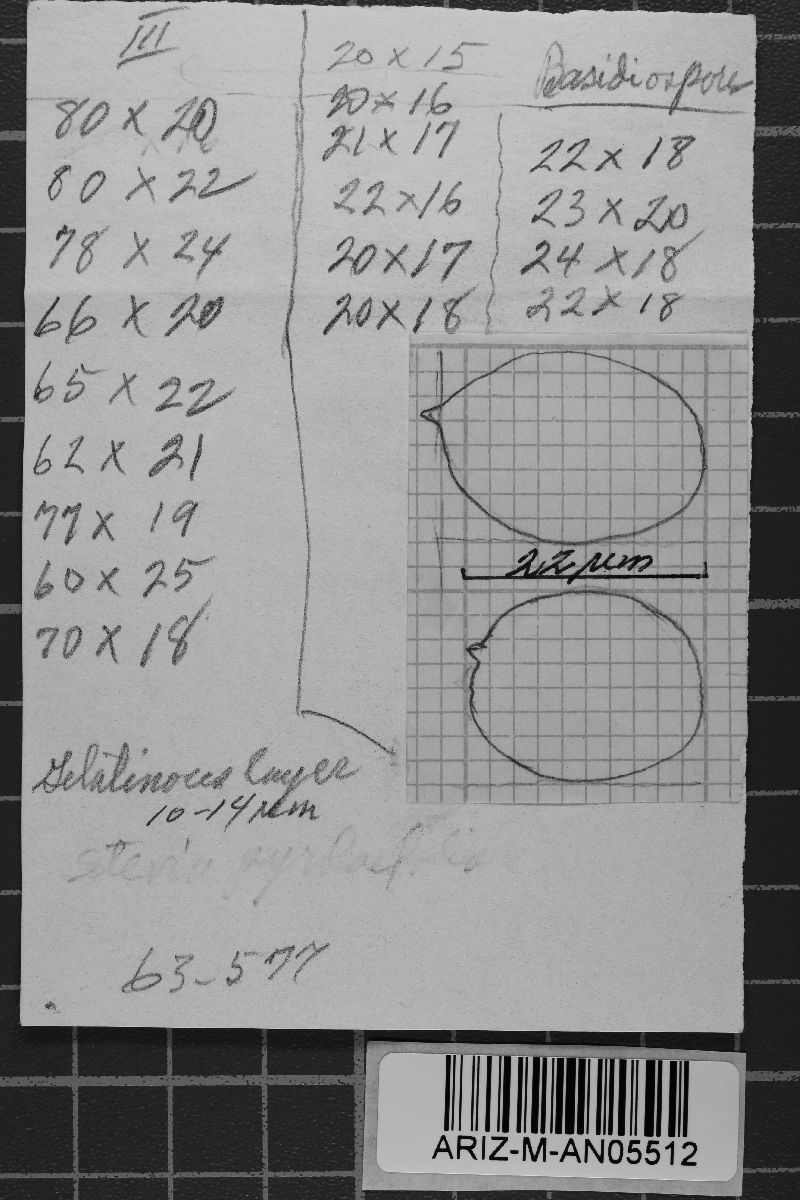 III
80 x 20
80 x 22
78 x 24
66 x 20
65 x 22
62 x 21
77 x 19
60 x 25
70 x 18
20 x 15
20 x 16
21 x 17
22 x 16
20 x 17
20 x 18
Basidiospores
22 x 18
23 x 20
24 x 18
22 x 18
22 µm
Gelatinous layer
10-14 µm
63-577
ARIZ-M-AN05512